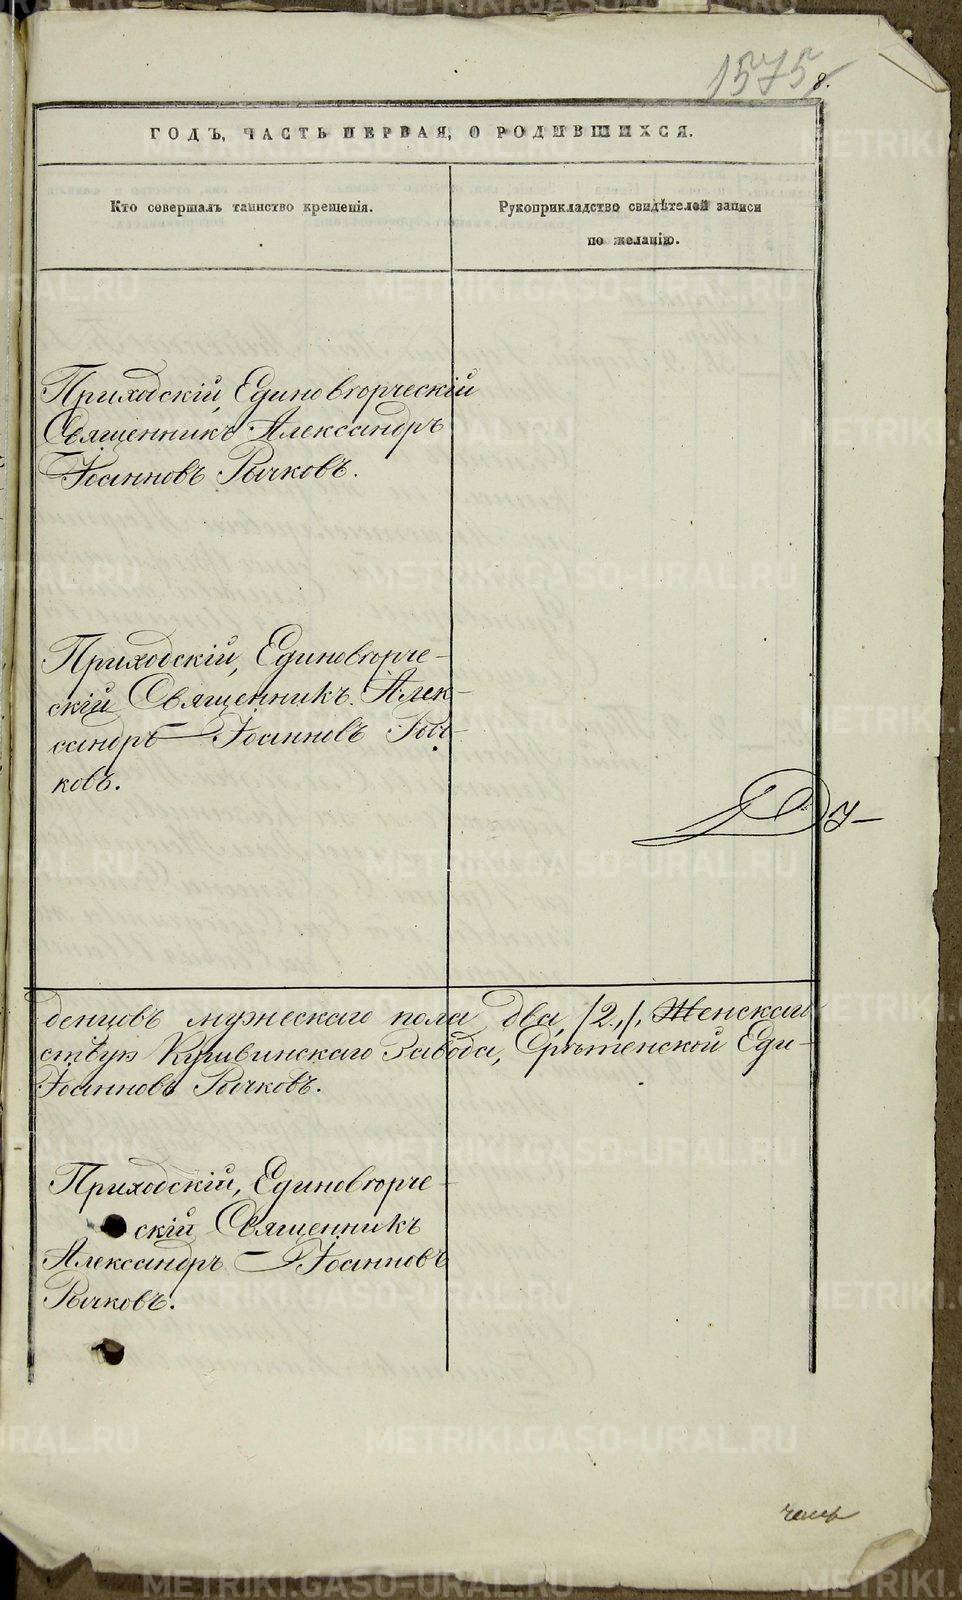 1575
8.
ГОДЪ, ЧАСТЬ ПЕРВАЯ, О РОДИВШИХСЯ.
Кто совершалъ таинство крещенія.
Рукоприкладство свидѣтелей записи
по желанію.
Приходскій, Единовѣрческій
Священникъ Александръ
Іоанновъ Рычковъ.
Приходскій, Единовѣрче-
скій Священникъ Алек-
сандръ Іоанновъ Рыч-
ковъ.
денцовъ мужескаго пола два, /2,/, Женскаго
ствуя Кушвинскаго Завода, Срѣтенской Еди-
Іоанновъ Рычковъ.
Приходскій, Единовѣрче-
скій Священникъ
Александръ Іоанновъ
Рычковъ.
METRIKI.GASO-URAL.RU